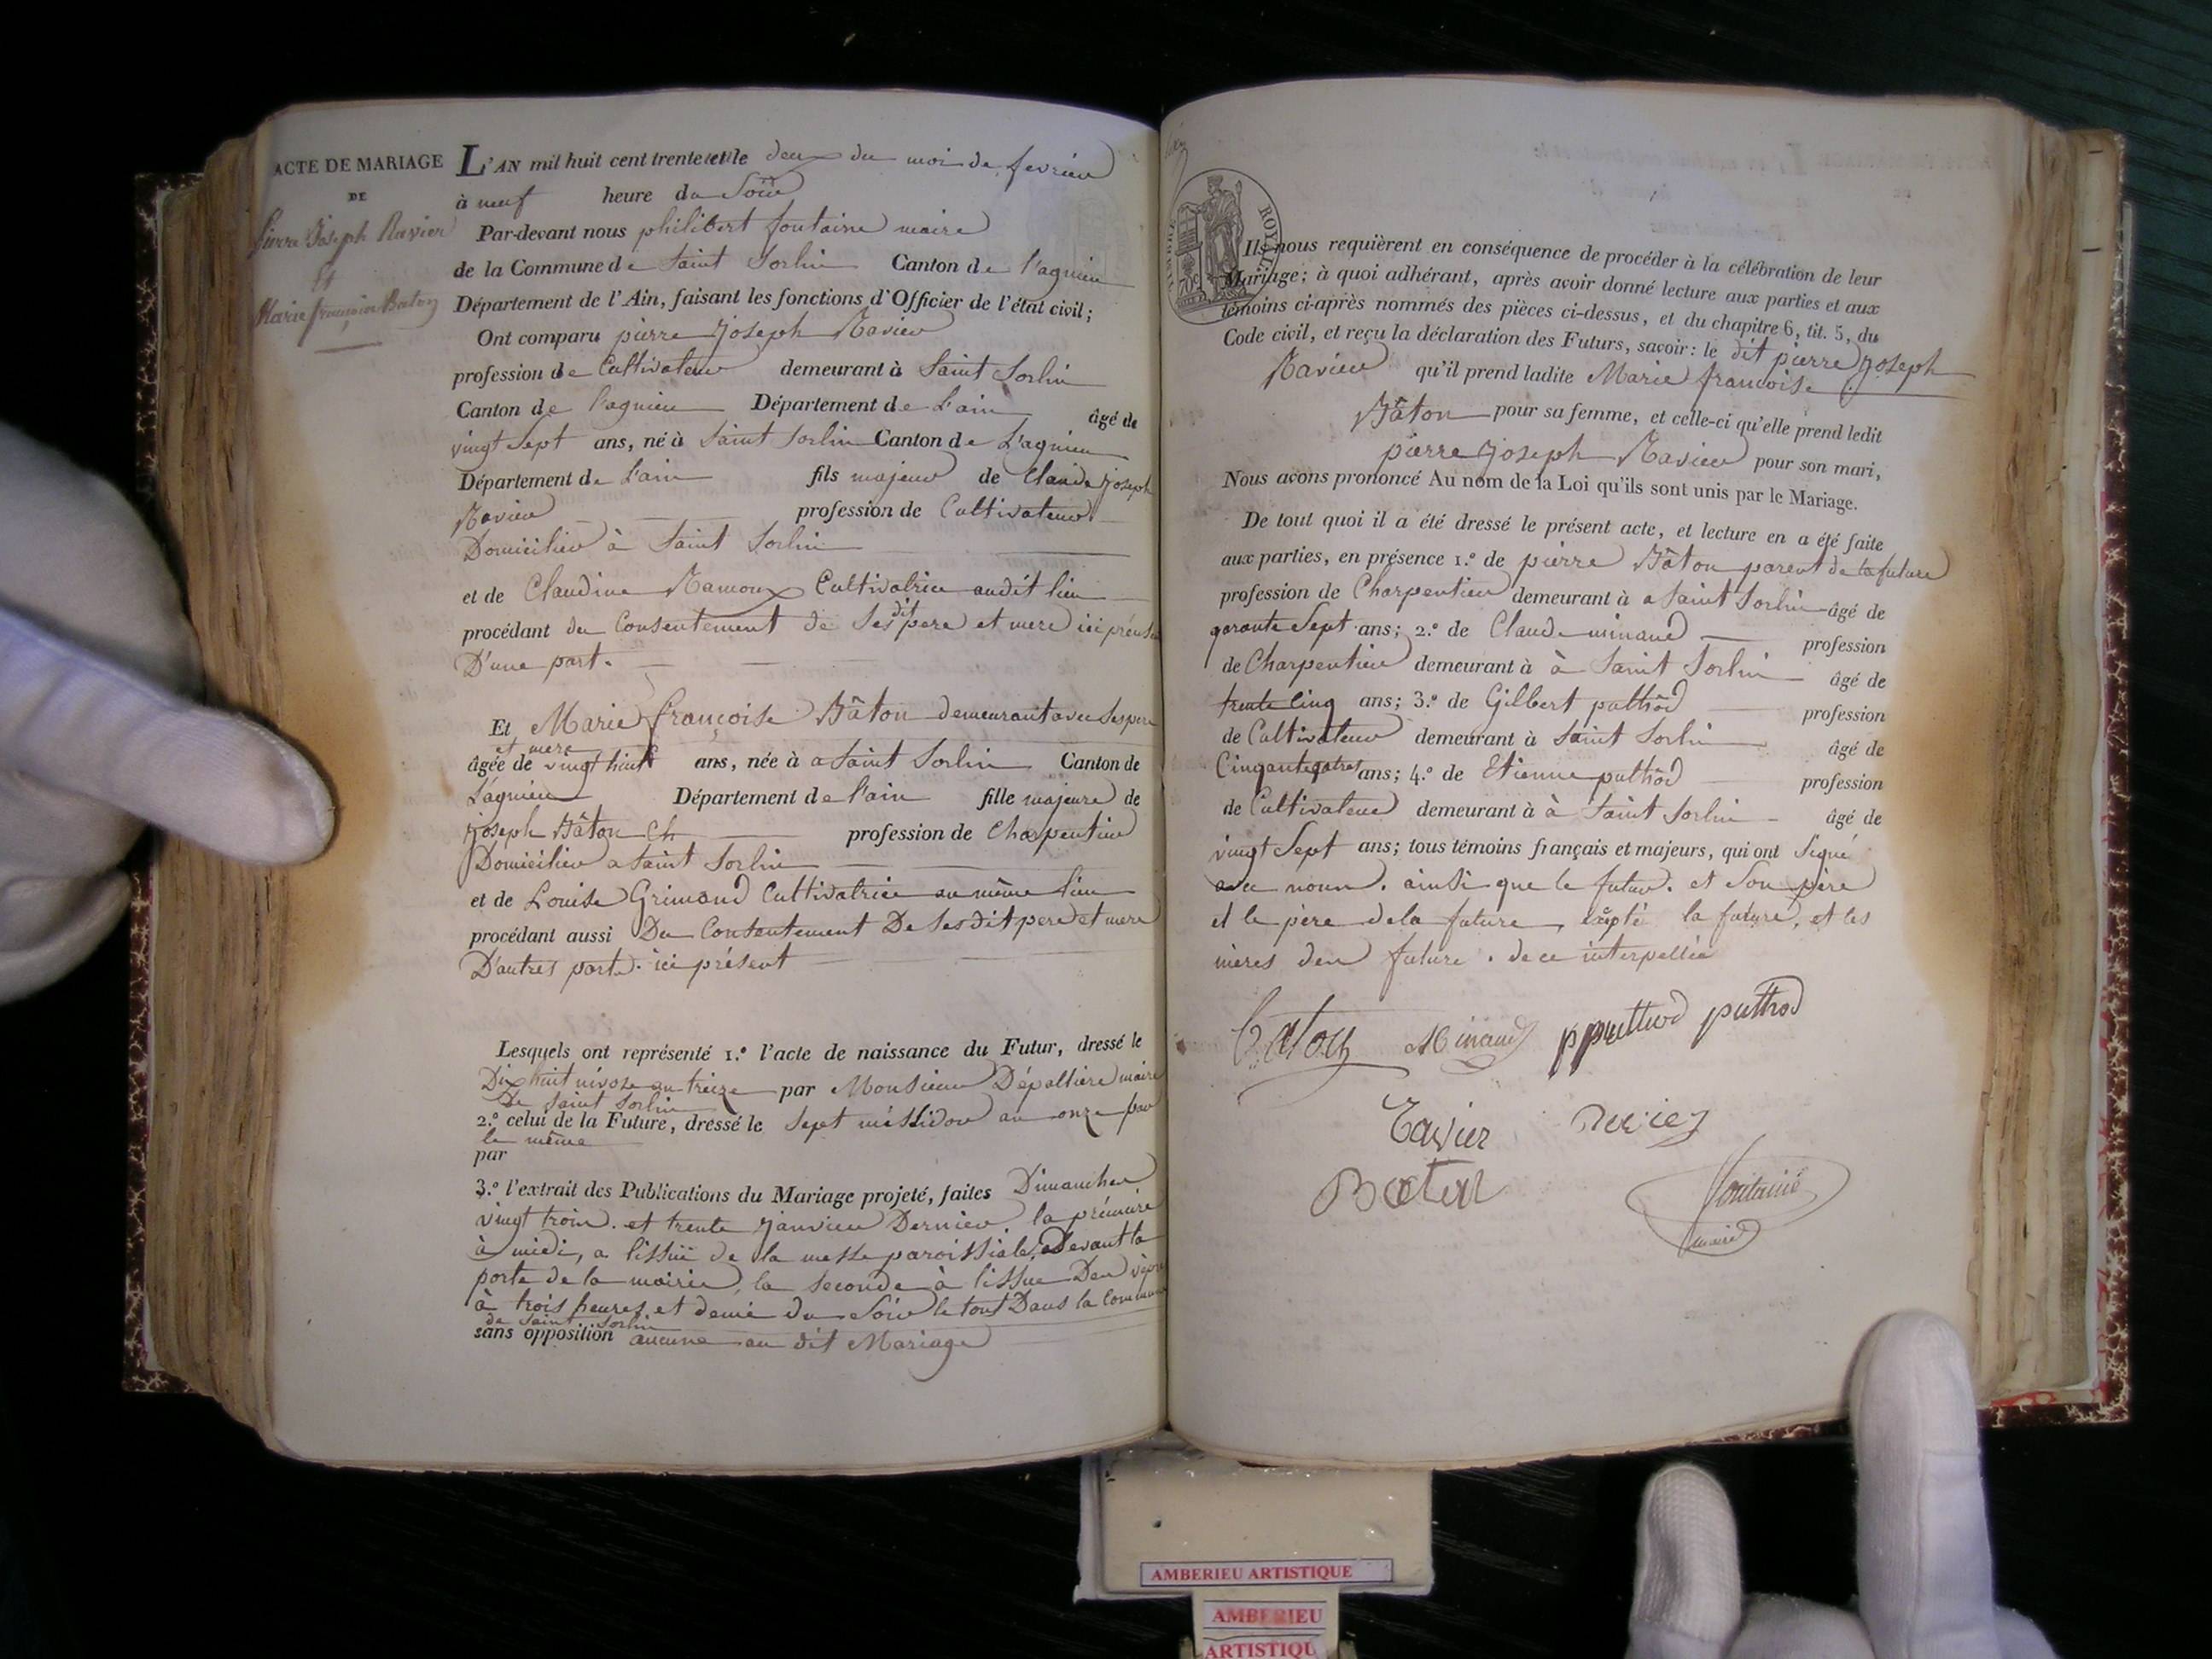 ACTE DE MARIAGE
DE
Pierre Joseph Ravier
Et
Marie françoise Baton
L'AN mil huit cent trente et le deux du moi de fevrier
à neuf heure du Soir
Par-devant nous philibert fontaine maire
de la Commune de Saint Sorlin Canton de l'agnieu
Département de l'Ain, faisant les fonctions d'Officier de l'état civil;
Ont comparu pierre joseph Ravier
profession de Cultivateur demeurant à Saint Sorlin
Canton de l'agnieu Département de L'ain âgé de
vingt Sept ans, né à Saint Sorlin Canton de L'agnieu
Département de L'ain fils majeur de Claude joseph
Ravier profession de Cultivateur
Domicilier à Saint Sorlin
et de Claudine Ramoux Cultivatrice audit lieu
procédant du Consentement de Ses dit pere et mere ici
D'une part.
Et Marie françoise Bâton demeurant avec Ses pere
et mere
âgée de vingt huit ans, née à a Saint Sorlin Canton de
Lagnieu Département de l'ain fille majeure de
joseph Bâton Ch profession de Charpentier
Domicilier a Saint Sorlin
et de Louise Grimand Cultivatrice au même lieu
procédant aussi Du Consentement De Ses dit pere et mere
D'autres part. ici présent
Lesquels ont représenté 1.º l'acte de naissance du Futur, dressé le
Dix huit nivoze an treize par Monsieur Dépallière maire
De Saint Sorlin
2.º celui de la Future, dressé le Sept méssidor an onze par
le même
par
3.º l'extrait des Publications du Mariage projeté, faites Dimanches
vingt trois. et trente janvier Dernier. la prémiére
à midi, a lissuë de la messe paroissiale, Devant la
porte de la mairie, la seconde à lissue Des vêpres
à trois heures et demie du Soir le tout Dans la Commune
de Saint Sorlin
sans opposition aucune au dit Mariage
TIMBRE ROYAL
70c
Ils nous requièrent en conséquence de procéder à la célébration de leur
Mariage; à quoi adhérant, après avoir donné lecture aux parties et aux
témoins ci-après nommés des pièces ci-dessus, et du chapitre 6, tit. 5, du
Code civil, et reçu la déclaration des Futurs, savoir: le dit pierre joseph
Ravier qu'il prend ladite Marie francoise
Bâton pour sa femme, et celle-ci qu'elle prend ledit
pierre joseph Ravier pour son mari,
Nous avons prononcé Au nom de la Loi qu'ils sont unis par le Mariage.
De tout quoi il a été dressé le présent acte, et lecture en a été faite
aux parties, en présence 1.º de pierre Bâton parent de la future
profession de Charpentier demeurant à a Saint Sorlin âgé de
qarante Sept ans; 2.º de Claude minand profession
de Charpentier demeurant à à Saint Sorlin âgé de
trente Cinq ans; 3.º de Gilbert puthod profession
de Cultivateur demeurant à Saint Sorlin âgé de
Cinqante ans; 4.º de Etienne puthod profession
de Cultivateur demeurant à à Saint Sorlin âgé de
vingt Sept ans; tous témoins français et majeurs, qui ont Signé
avec nous. ainsi que le futur. et Son père
et le père de la future, la future, et les
mères future. de ce
Baton Minand puthod
Ravier
Baton fontaine
maire
AMBERIEU ARTISTIQUE
AMBERIEU
ARTISTIQU